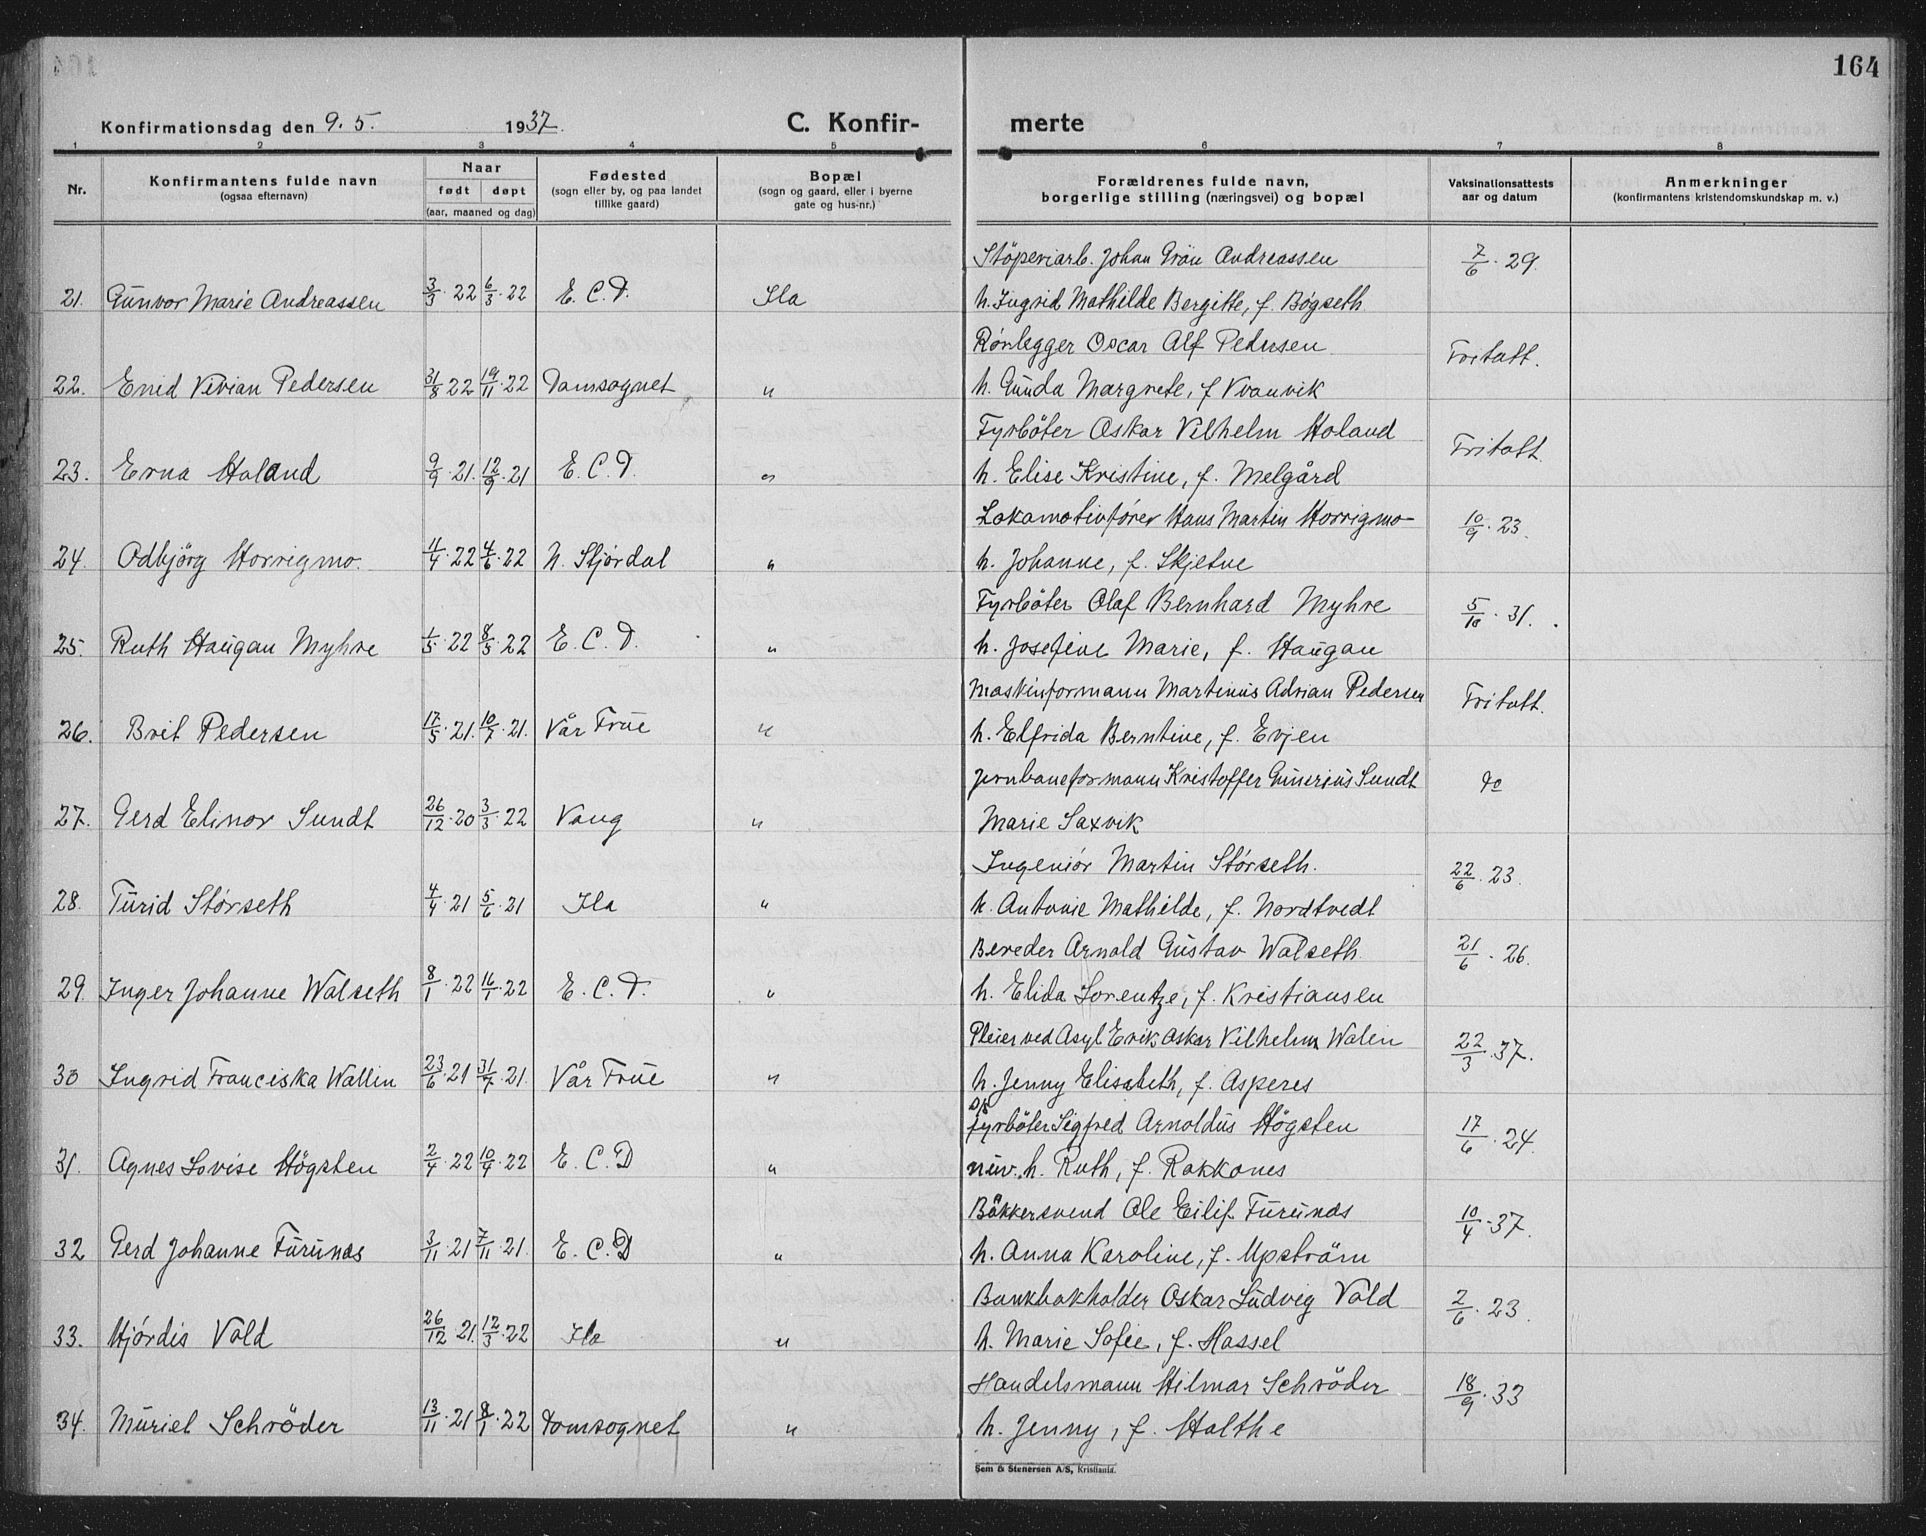 164
Konfirmationsdag den 9. 5. 1937. C. Konfir- merte
1 2 3 4 5 6 7 8
Nr. Konfirmantens fulde navn (ogsaa efternavn) Naar født døpt (aar, maaned og dag) Fødested (sogn eller by, og paa landet tillike gaard) Bopæl (sogn og gaard, eller i byerne gate og hus-nr.) Forældrenes fulde navn, borgerlige stilling (næringsvei) og bopæl Vaksinationsattests aar og datum Anmerkninger (konfirmantens kristendomskundskap m. v.)
Støperiarb. Johan Grøn Andreassen 7/6. 29.
21. Gunvor Marie Andreassen 3/3. 22 6/3. 22 E. C. D. Ila h. Ingrid Mathilde Bergitte, f. Bøgseth
Rørlegger Oscar Alf Pedersen Fritatt.
22. Enid Vivian Pedersen 31/8 22 19/11. 22 Domsognet " h. Gunda Margrete, f Kvanvik
Fyrbøter Oskar Vilhelm Holand Fritatt.
23. Erna Holand 9/9. 21. 12/9. 21 E. C. D. " h. Elise Kristine, f. Melgård
Lokomotivfører Hans Martin Horrigmo 10/9. 23.
24. Odbjörg Horrigmo. 11/4. 22 4/6. 22 N. Stjørdal " h. Johanne, f. Skjetne
Fyrböter Olaf Bernhard Myhre 5/10. 31.
25. Ruth Haugan Myhre 1/5. 22 8/5. 22 E. C. D. " h. Josefine Marie, f. Haugan
Maskinformann Martinus Adrian Pedersen Fritatt.
26. Brit Pedersen 17/5. 21. 10/7. 21. Vår Frue " h. Elfrida Berntine, f. Evjen
Jernbaneformann Kristoffer Gunerius Sundt do
27. Gerd Elinor Sundt 26/12. 20 3/3. 22 Vang " Marie Saxvik
Ingeniør Martin Störseth. 22/6. 23.
28. Turid Störseth 4/4. 21 5/6. 21 Ila " h. Antonie Mathilde, f. Nordtvedt
Bereder Arnold Gustav Walseth. 21/6. 26.
29. Inger Johanne Walseth 8/1. 22 16/1. 22 E. C. D. " h. Elida Lorentze, f. Kristiansen
Pleier ved Asyl Erik Oskar Vilhelm Walin 22/3. 37.
30 Ingrid Franciska Wallin 23/6. 21 31/7. 21. Vår Frue " h. Jenny Elisabeth, f. Asperes
fyrböter Sigfred Arnoldus Högsten 17/6. 24.
31. Agnes Lovise Högsten 2/4. 22 10/9. 22 E. C. D " nuv. h. Ruth, f. Rokkones
Bäkkersvend Ole Eilif Furunes 10/4. 37.
32 Gerd Johanne Furunes 3/11. 21 7/11. 21. E. C. D " h. Anna Karoline, f. Upström
Bankbokholder Oskar Ludvig Vold 2/6. 23.
33. Hjördis Vold 26/12. 21. 12/3. 22 Ila " h. Marie Sofie, f. Hassel
Handelsmann Hilmar Schröder 18/9. 33
34. Muriel Schröder 13/11. 21 8/1. 22 Domsognet " h. Jenny, f. Holthe
Sem & Stenersen A/S, Kristiania.